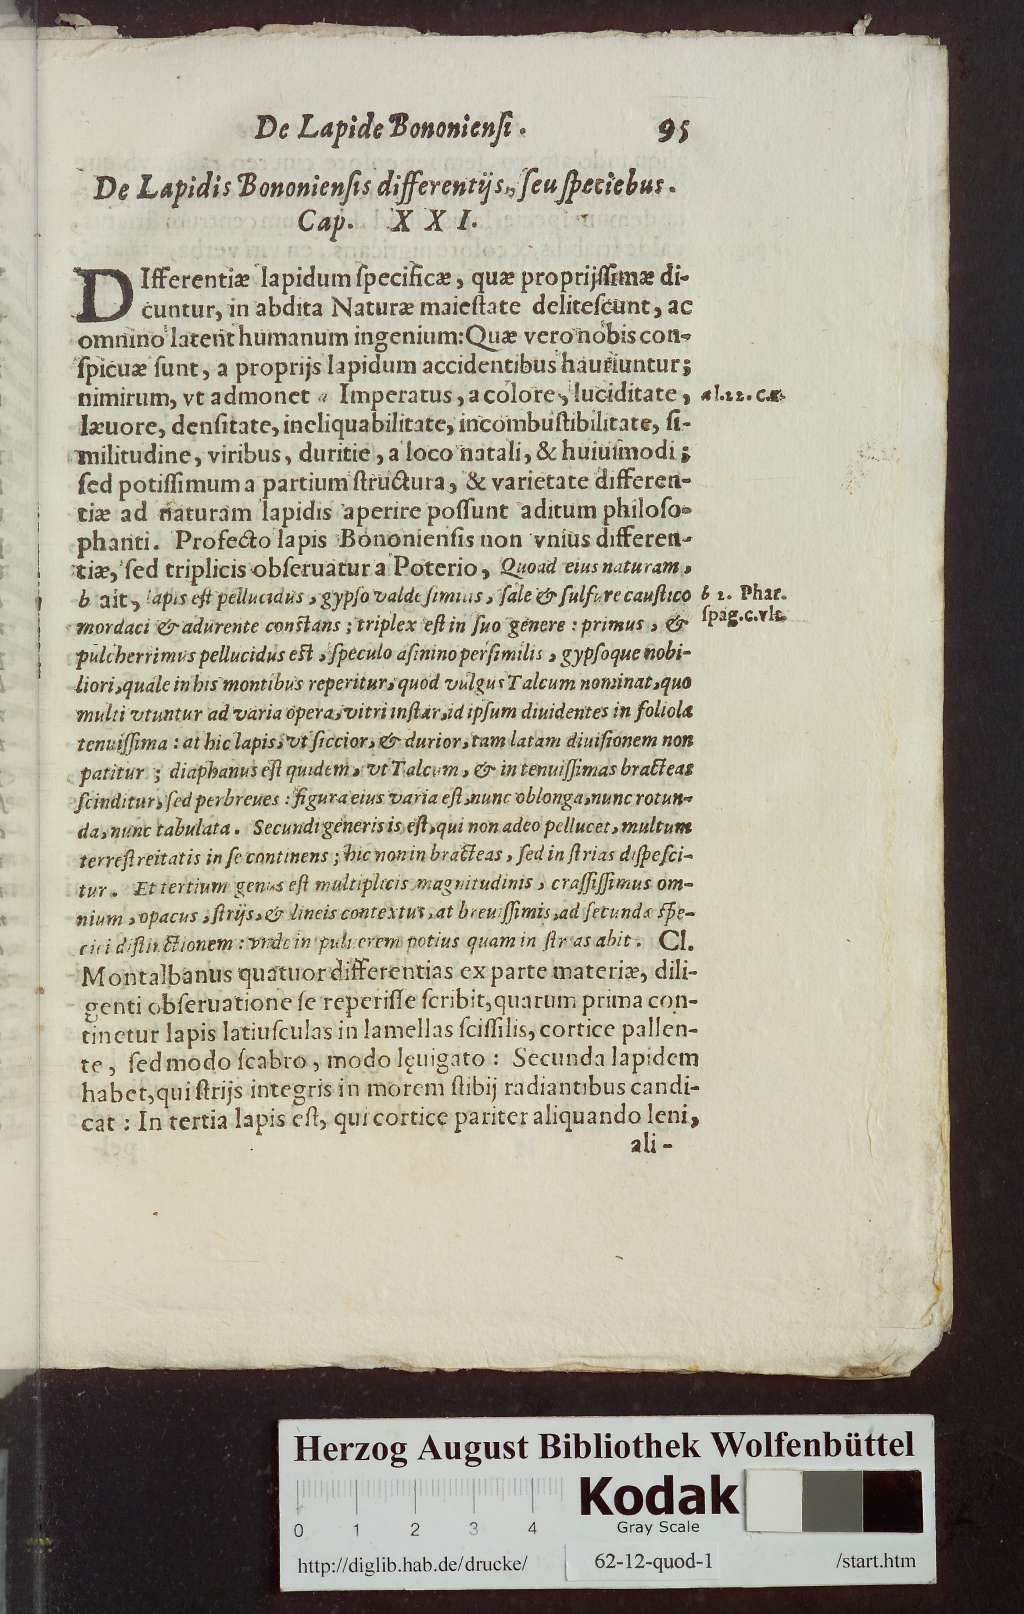 De Lapide Bononiensi. 95
De Lapidis Bononiensis differentijs, seu speciebus.
Cap. X X I.
DIfferentiæ lapidum specificæ, quæ proprijssimæ di-
cuntur, in abdita Naturæ maiestate delitescunt, ac
omnino latent humanum ingenium: Quæ vero nobis con-
spicuæ sunt, a proprijs lapidum accidentibus hauriuntur;
nimirum, vt admonet a Imperatus, a colore, luciditate, a l. 22. c.
læuore, densitate, ineliquabilitate, incombustibilitate, si-
militudine, viribus, duritie, a loco natali, & huiusmodi;
sed potissimum a partium structura, & varietate differen-
tiæ ad naturam lapidis aperire possunt aditum philoso-
phanti. Profecto lapis Bononiensis non vnius differen-
tiæ, sed triplicis obseruatur a Poterio, Quoad eius naturam,
b ait, lapis est pellucidus, gypso valde similis, sale & sulfure caustico b 2. Phar.
mordaci & adurente constans; triplex est in suo genere: primus, & spag. c. vlt.
pulcherrimus pellucidus est, speculo asinino persimilis, gypsoque nobi-
liori, quale in his montibus reperitur, quod vulgus Talcum nominat, quo
multi vtuntur ad varia opera, vitri instar, id ipsum diuidentes in foliola
tenuissima: at hic lapis, vt siccior, & durior, tam latam diuisionem non
patitur; diaphanus est quidem, vt Talcum, & in tenuissimas bracteas
scinditur, sed perbreues: figura eius varia est, nunc oblonga, nunc rotun-
da, nunc tabulata. Secundi generis is est, qui non adeo pellucet, multum
terrestreitatis in se continens; hic non in bracteas, sed in strias dispesci-
tur. Et tertium genus est multiplicis magnitudinis, crassissimus om-
nium, opacus, strijs, & lineis contextus, at breuissimis, ad secundæ spe-
ciei distinctionem: vnde in puluerem potius quam in strias abit. Cl.
Montalbanus quatuor differentias ex parte materiæ, dili-
genti obseruatione se reperisse scribit, quarum prima con-
tinetur lapis latiusculas in lamellas scissilis, cortice pallen-
te, sed modo scabro, modo lęuigato: Secunda lapidem
habet, qui strijs integris in morem stibij radiantibus candi-
cat: In tertia lapis est, qui cortice pariter aliquando leni,
ali-
Herzog August Bibliothek Wolfenbüttel
Kodak
Gray Scale
0 1 2 3 4
http://diglib.hab.de/drucke/ 62-12-quod-1 /start.htm